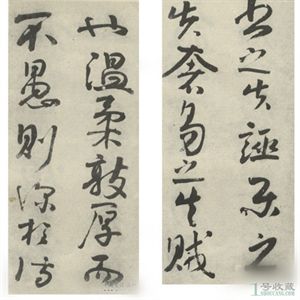 書之失誣樂之
失奢易之失賊
也溫柔敦厚而
不愚則深於詩
1号收藏